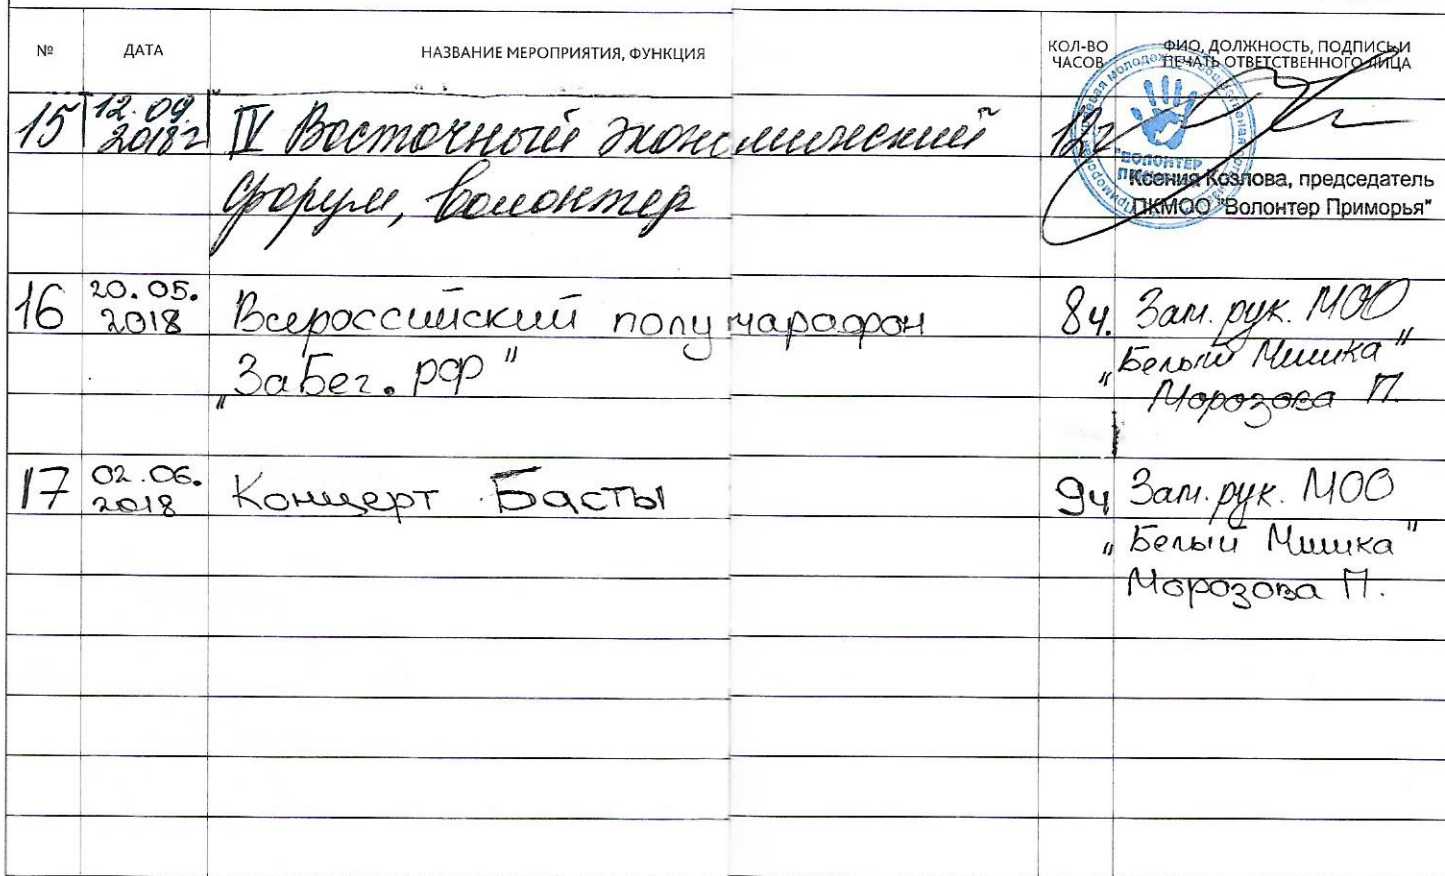 № ДАТА НАЗВАНИЕ МЕРОПРИЯТИЯ, ФУНКЦИЯ КОЛ-ВО ЧАСОВ ФИО, ДОЛЖНОСТЬ, ПОДПИСЬ И ПЕЧАТЬ ОТВЕТСТВЕННОГО ЛИЦА
15 12.09. 2018г IV Восточный экономический
форум, волонтер
"ВОЛОНТЕР
Ксения Козлова, председатель
ПКМОО "Волонтер Приморья"
16 20.05. 2018 Всероссийский полумарафон 8ч. Зам. рук. МОО
„ЗаБег.рф" „Белый Мишка"
Морозова П.
17 02.06. 2018 Концерт Басты 9ч Зам. рук. МОО
„Белый Мишка"
Морозова П.